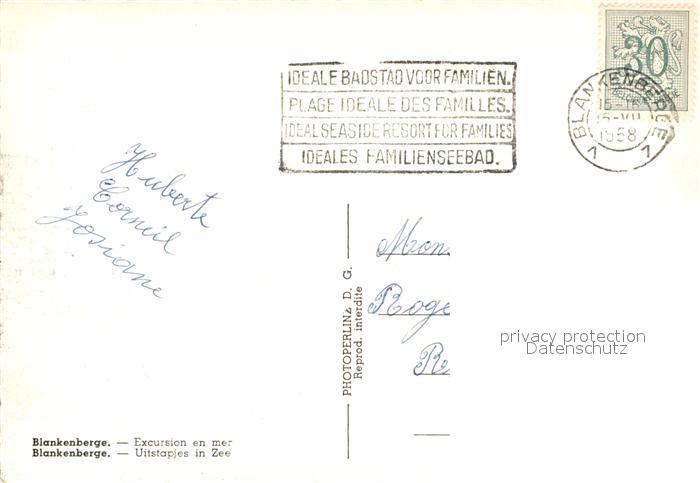 IDEALE BADSTAD VOOR FAMILIËN.
PLAGE IDEALE DES FAMILLES.
IDEAL SEASIDE RESORT FOR FAMILIES
IDEALES FAMILIENSEEBAD.
30
BLANKENBERGE
1958
1 1
Huberte
Corneil
Josiane
Mon.
Roge
Re
PHOTOPERLINE D. G.
Reprod. interdite
privacy protection
Datenschutz
Blankenberge. — Excursion en mer
Blankenberge. — Uitstapjes in Zee